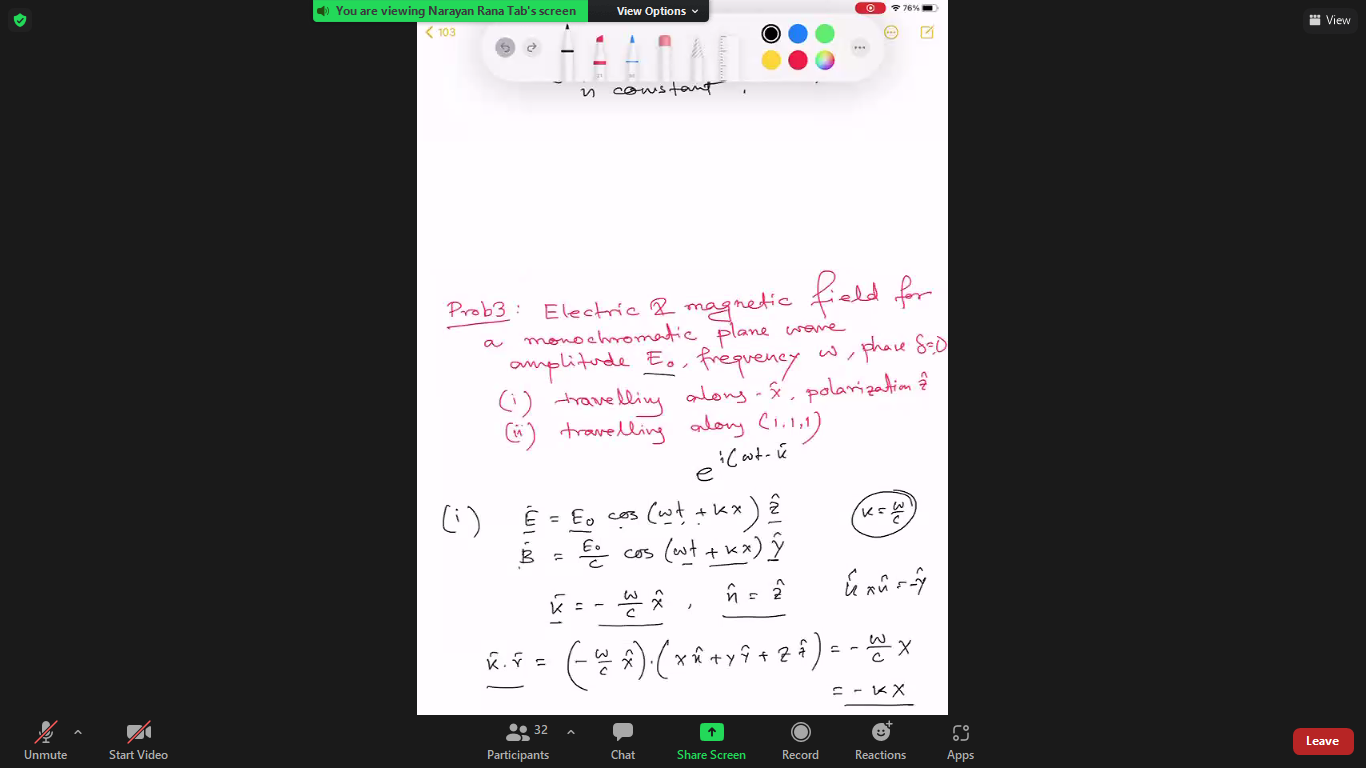 You are viewing Narayan Rana Tab's screen
View Options
76%
View
103
in constant.
Prob3: Electric & magnetic field for
a monochromatic plane wave
amplitude E₀, frequency ω, phase δ=0
(i) travelling along -x̂, polarization ẑ
(ii) travelling along (1,1,1)
e^i(ωt-k̄
(i) Ē = E₀ cos (ωt + kx) ẑ
k = ω/c
B̄ = E₀/c cos (ωt + kx) ŷ
k̄ = - ω/c x̂ , n̂ = ẑ
k̂ × n̂ = -ŷ
k̄.r̄ = (- ω/c x̂).(x x̂ + y ŷ + z ẑ) = - ω/c x
= - kx
Unmute
Start Video
Participants
32
Chat
Share Screen
Record
Reactions
Apps
Leave